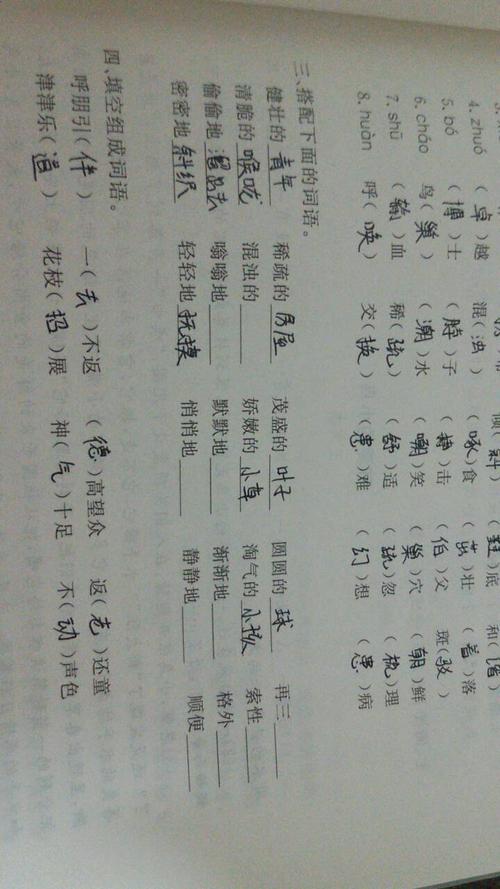 4. zhuó （卓）越 混（浊） （啄）食 （茁）壮 （着）落
5. bó （博）士 （脖）子 （搏）击 （伯）父 斑（驳）
6. cháo 鸟（巢） （潮）水 （嘲）笑 （巢）穴 （朝）鲜
7. shū （输）血 稀（疏） （舒）适 （疏）忽 （梳）理
8. huàn 呼（唤） 交（换） （患）难 （幻）想 （患）病
三、搭配下面的词语。
健壮的青年 稀疏的房屋 茂盛的叶子 圆圆的球 再三
清脆的喉咙 混浊的 娇嫩的小草 淘气的小孩 索性
偷偷地溜出去 嗡嗡地 默默地 渐渐地 格外
密密地斜织 轻轻地抚摸 悄悄地 静静地 顺便
四、填空组成词语。
呼朋引（伴） 一（去）不返 （德）高望众 返（老）还童
津津乐（道） 花枝（招）展 神（气）十足 不（动）声色